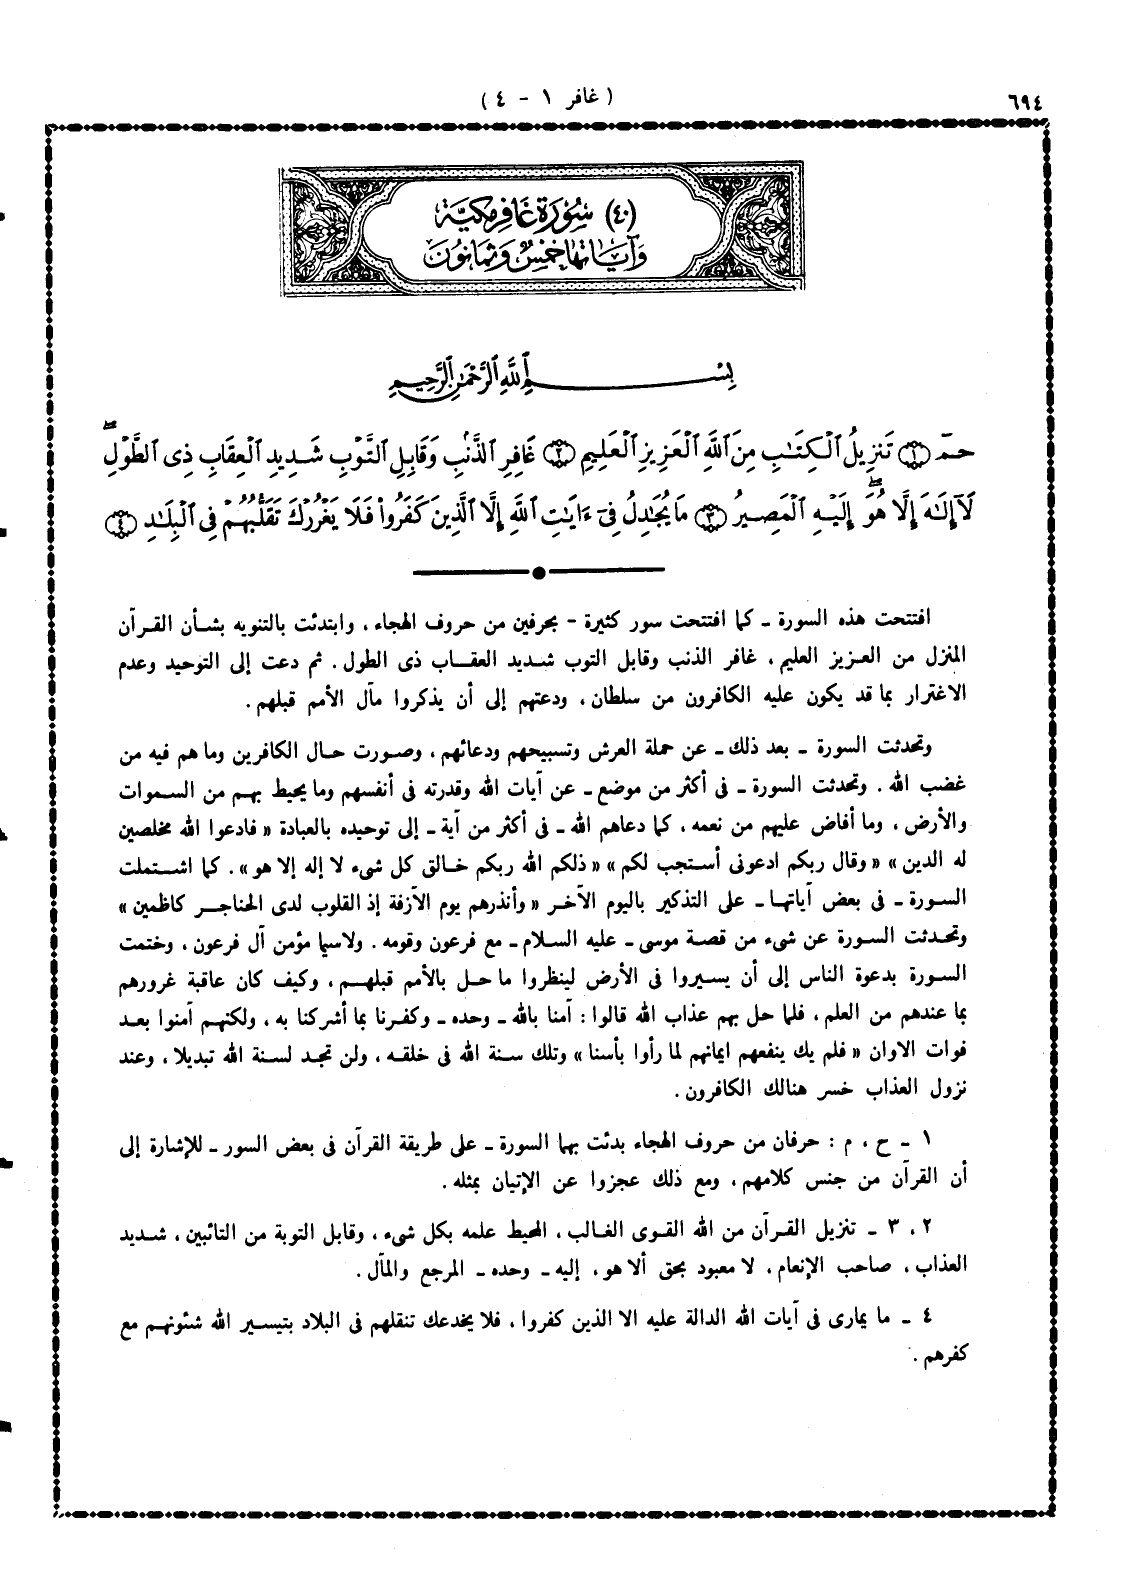 ٦٩٤
( غافر ١ - ٤ )
(٤٠) سُورَة غَافِر مكيّة
وَآيَاتهَا خَمْسٌ وَثَمَانُونَ
بِسْمِ ٱللَّهِ ٱلرَّحْمَٰنِ ٱلرَّحِيمِ
حمٓ ﴿١﴾ تَنزِيلُ ٱلْكِتَٰبِ مِنَ ٱللَّهِ ٱلْعَزِيزِ ٱلْعَلِيمِ ﴿٢﴾ غَافِرِ ٱلذَّنۢبِ وَقَابِلِ ٱلتَّوْبِ شَدِيدِ ٱلْعِقَابِ ذِى ٱلطَّوْلِ ۖ
لَآ إِلَٰهَ إِلَّا هُوَ ۖ إِلَيْهِ ٱلْمَصِيرُ ﴿٣﴾ مَا يُجَٰدِلُ فِىٓ ءَايَٰتِ ٱللَّهِ إِلَّا ٱلَّذِينَ كَفَرُوا۟ فَلَا يَغْرُرْكَ تَقَلُّبُهُمْ فِى ٱلْبِلَٰدِ ﴿٤﴾
افتتحت هذه السورة ـ كما افتتحت سور كثيرة - بحرفين من حروف الهجاء ، وابتدئت بالتنويه بشأن القرآن
المنزل من العزيز العليم ، غافر الذنب وقابل التوب شديد العقاب ذى الطول . ثم دعت إلى التوحيد وعدم
الاغترار بما قد يكون عليه الكافرون من سلطان ، ودعتهم إلى أن يذكروا مآل الأمم قبلهم .
وتحدثت السورة ـ بعد ذلك ـ عن حملة العرش وتسبيحهم ودعائهم ، وصورت حال الكافرين وما هم فيه من
غضب الله . وتحدثت السورة ـ فى أكثر من موضع ـ عن آيات الله وقدرته فى أنفسهم وما يحيط بهم من السموات
والأرض ، وما أفاض عليهم من نعمه ، كما دعاهم الله ـ فى أكثر من آية ـ إلى توحيده بالعبادة « فادعوا الله مخلصين
له الدين » « وقال ربكم ادعونى أستجب لكم » « ذلكم الله ربكم خالق كل شىء لا إله إلا هو » . كما اشتملت
السورة ـ فى بعض آياتها ـ على التذكير باليوم الآخر « وأنذرهم يوم الآزفة إذ القلوب لدى الحناجر كاظمين »
وتحدثت السورة عن شىء من قصة موسى ـ عليه السلام ـ مع فرعون وقومه . ولاسيما مؤمن آل فرعون ، وختمت
السورة بدعوة الناس إلى أن يسيروا فى الأرض لينظروا ما حل بالأمم قبلهم ، وكيف كان عاقبة غرورهم
بما عندهم من العلم ، فلما حل بهم عذاب الله قالوا : آمنا بالله ـ وحده ـ وكفرنا بما أشركنا به ، ولكنهم آمنوا بعد
فوات الاوان « فلم يك ينفعهم ايمانهم لما رأوا بأسنا » وتلك سنة الله فى خلقه ، ولن تجد لسنة الله تبديلا ، وعند
نزول العذاب خسر هنالك الكافرون .
١ ـ ح ، م : حرفان من حروف الهجاء بدئت بهما السورة ـ على طريقة القرآن فى بعض السور ـ للإشارة إلى
أن القرآن من جنس كلامهم ، ومع ذلك عجزوا عن الإتيان بمثله .
٢ ، ٣ ـ تنزيل القرآن من الله القوى الغالب ، المحيط علمه بكل شىء ، وقابل التوبة من التائبين ، شديد
العذاب ، صاحب الإنعام ، لا معبود بحق ألا هو ، إليه ـ وحده ـ المرجع والمآل .
٤ ـ ما يمارى فى آيات الله الدالة عليه الا الذين كفروا ، فلا يخدعك تنقلهم فى البلاد بتيسير الله شئونهم مع
كفرهم .